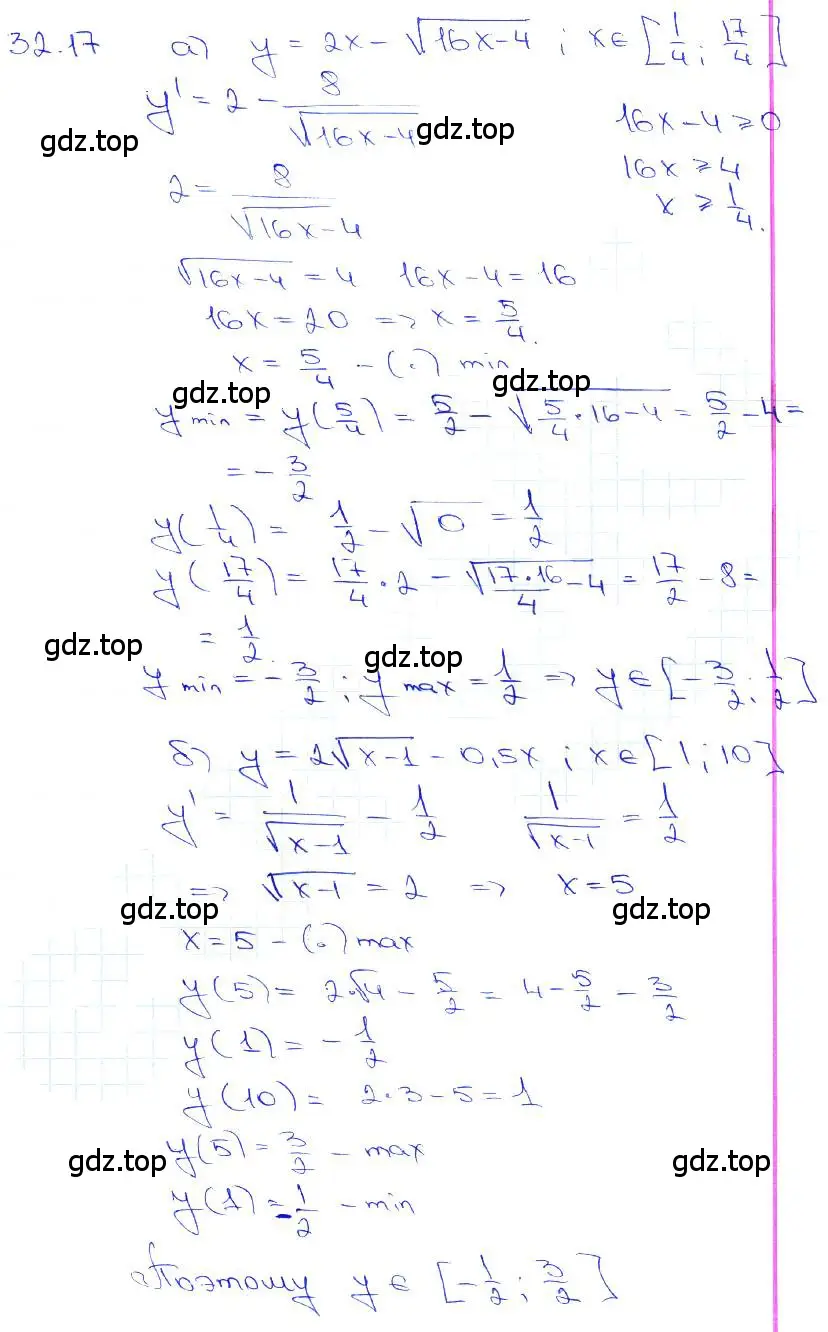 32.17 а) y = 2x - √(16x-4) ; x∈[1/4 ; 17/4]
y' = 2 - 8/√(16x-4)
gdz.top gdz.top 16x-4 ⩾ 0
16x ⩾ 4
2 = 8/√(16x-4) x ⩾ 1/4.
√(16x-4) = 4 16x-4 = 16
16x = 20 => x = 5/4.
x = 5/4 - (·) min
gdz.top gdz.top
y min = y(5/4) = 5/2 - √(5/4·16-4) = 5/2 - 4 =
= -3/2
y(1/4) = 1/2 - √0 = 1/2
y(17/4) = 17/4·2 - √(17·16/4-4) = 17/2 - 8 =
= 1/2.
gdz.top gdz.top
y min = -3/2 ; y max = 1/2 => y∈[-3/2 ; 1/2]
б) y = 2√(x-1) - 0,5x ; x∈[1 ; 10]
y' = 1/√(x-1) - 1/2 1/√(x-1) = 1/2
=> √(x-1) = 2 => x = 5
gdz.top gdz.top
x = 5 - (·) max
y(5) = 2·√4 - 5/2 = 4 - 5/2 - 3/2
y(1) = -1/2
y(10) = 2·3 - 5 = 1
y(5) = 3/2 - max
gdz.top gdz.top
y(1) = -1/2 - min
Поэтому y∈[-1/2 ; 3/2]